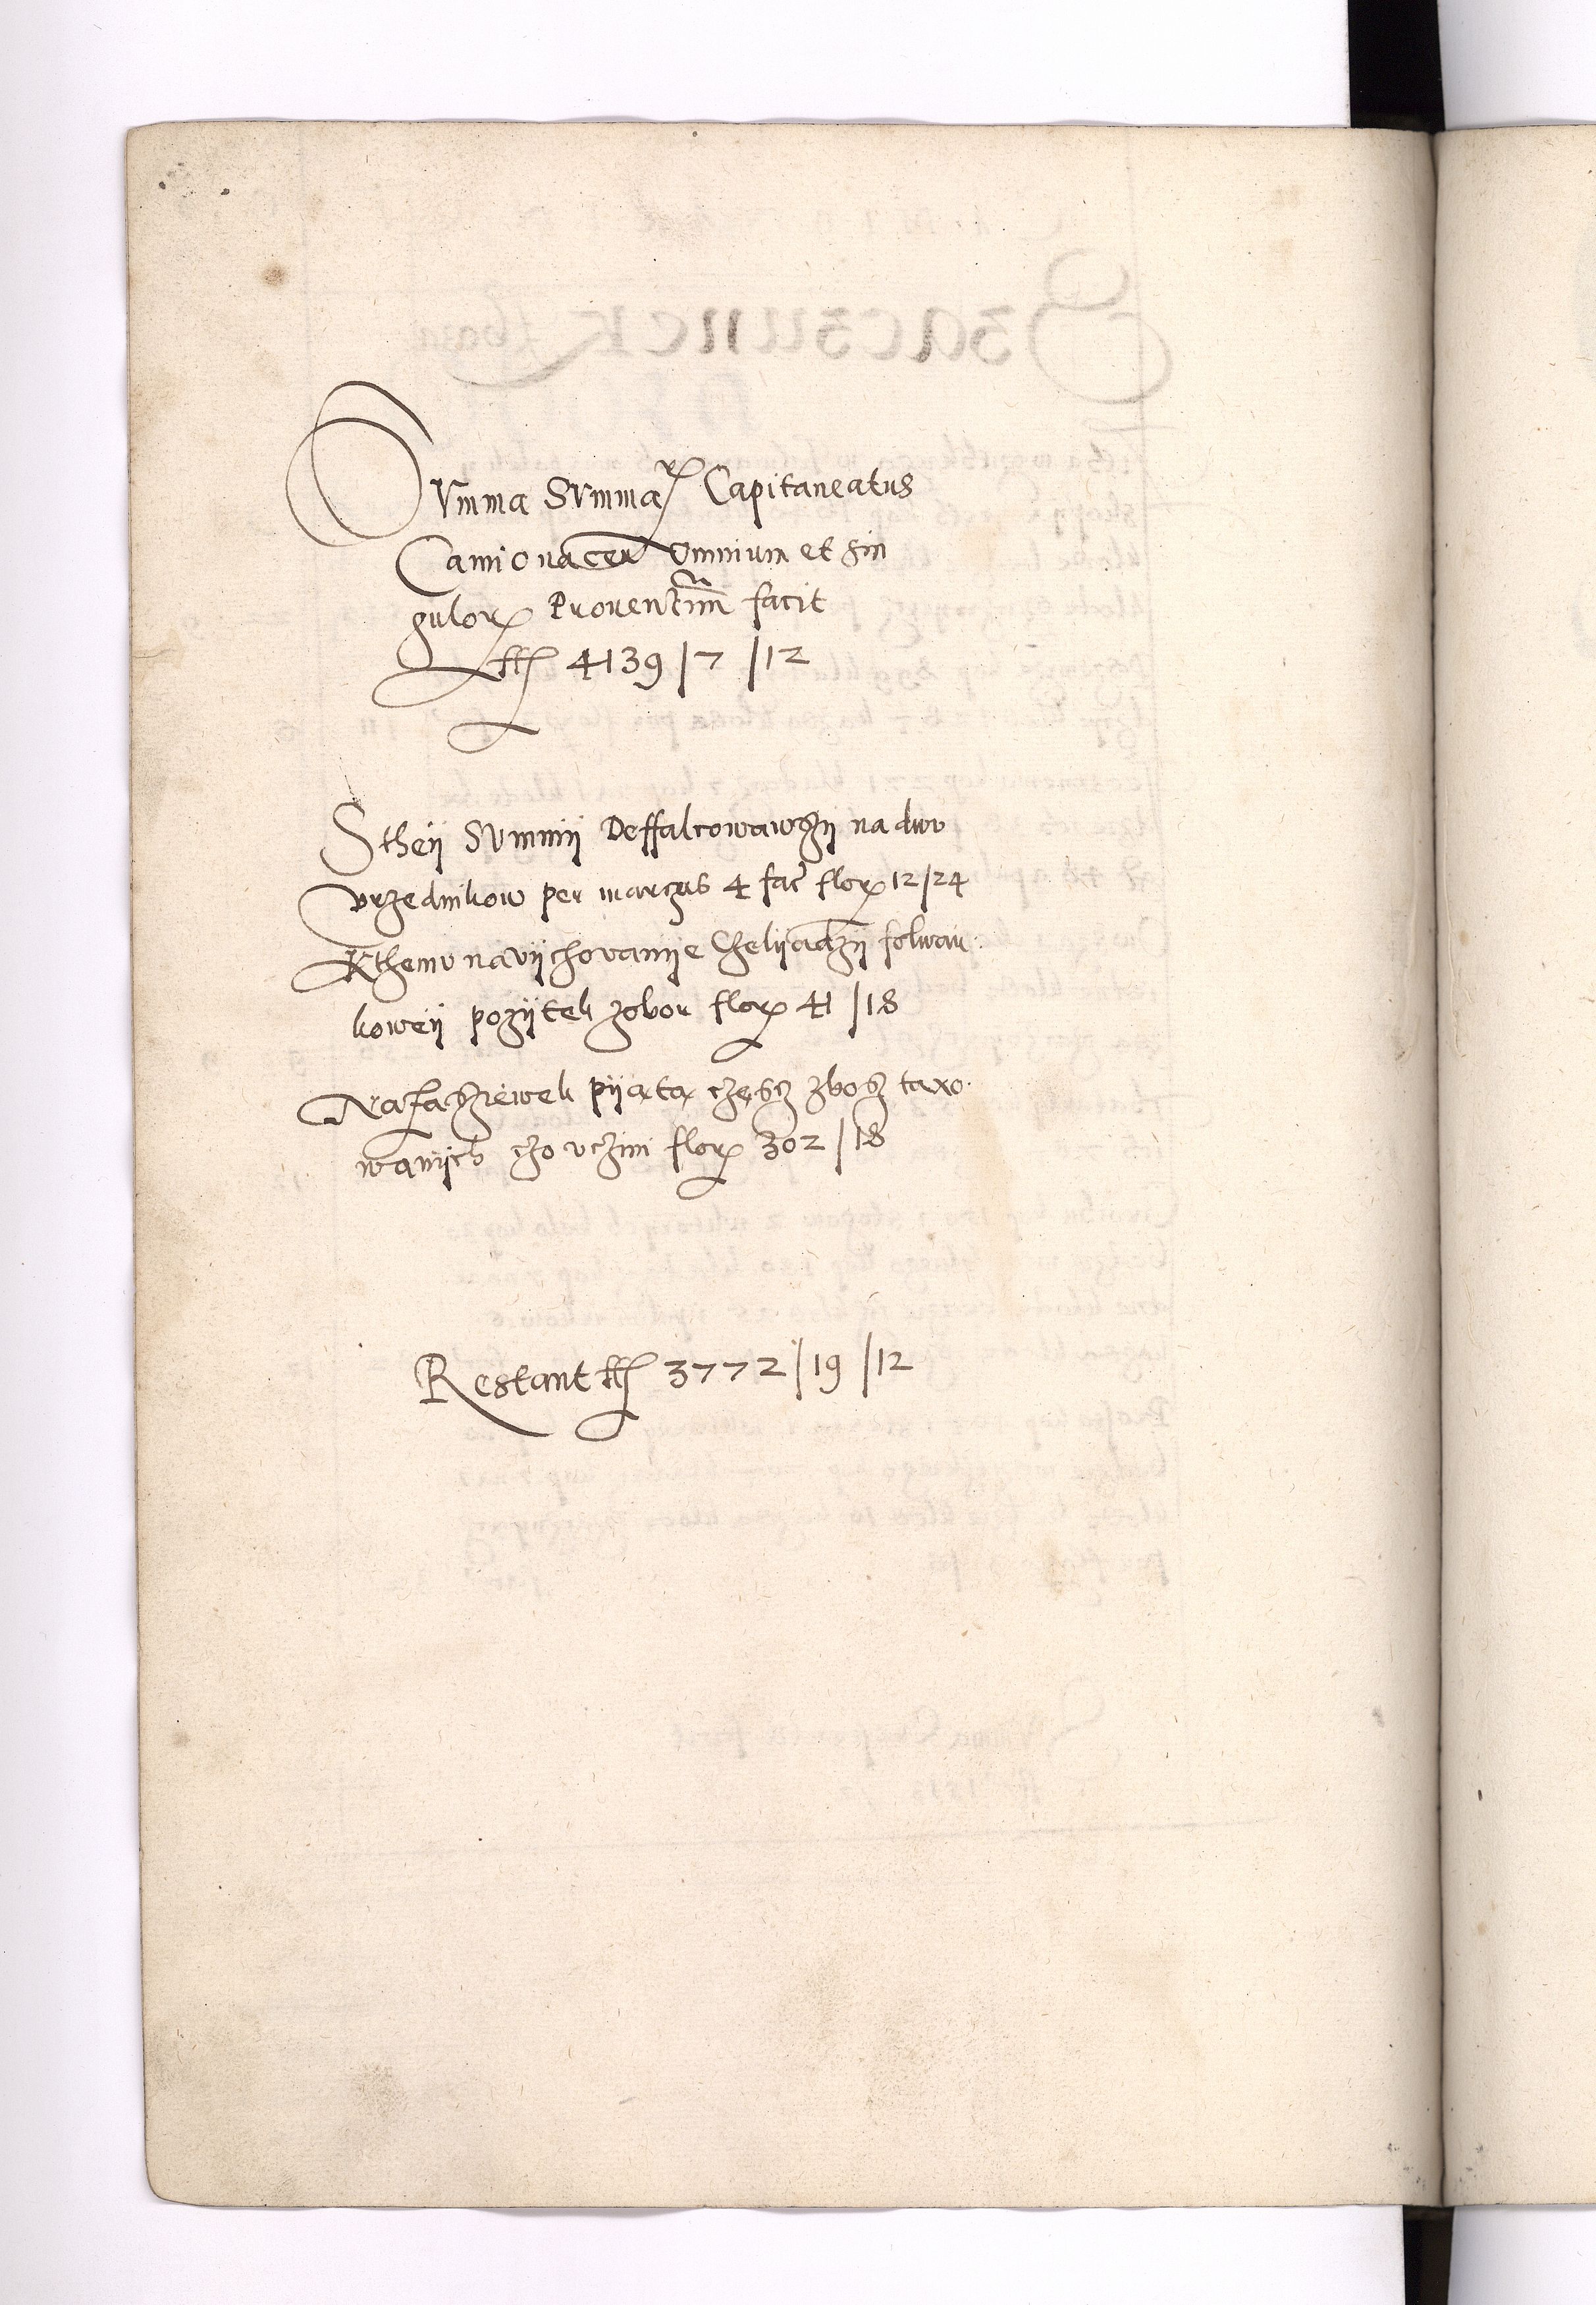 SVmma SVmmaꝝ Capitaneatus
Camionacen Omnium et sin
guloꝝ Prouentuum facit
ff 4139/7/12
Stheÿ Summÿ Deffalcowawszÿ na dwu
vrzednikow per marczas 4 fac̃ floꝝ 12/24
Kthemu na vÿchovanije Czelÿadzÿ folwar
koweÿ pozÿtek zobor floꝝ 41/18
Na zasziewek pÿąta część zbosz taxo
wanÿch czo vczini floꝝ 302/18
Restant ff 3772/19/12